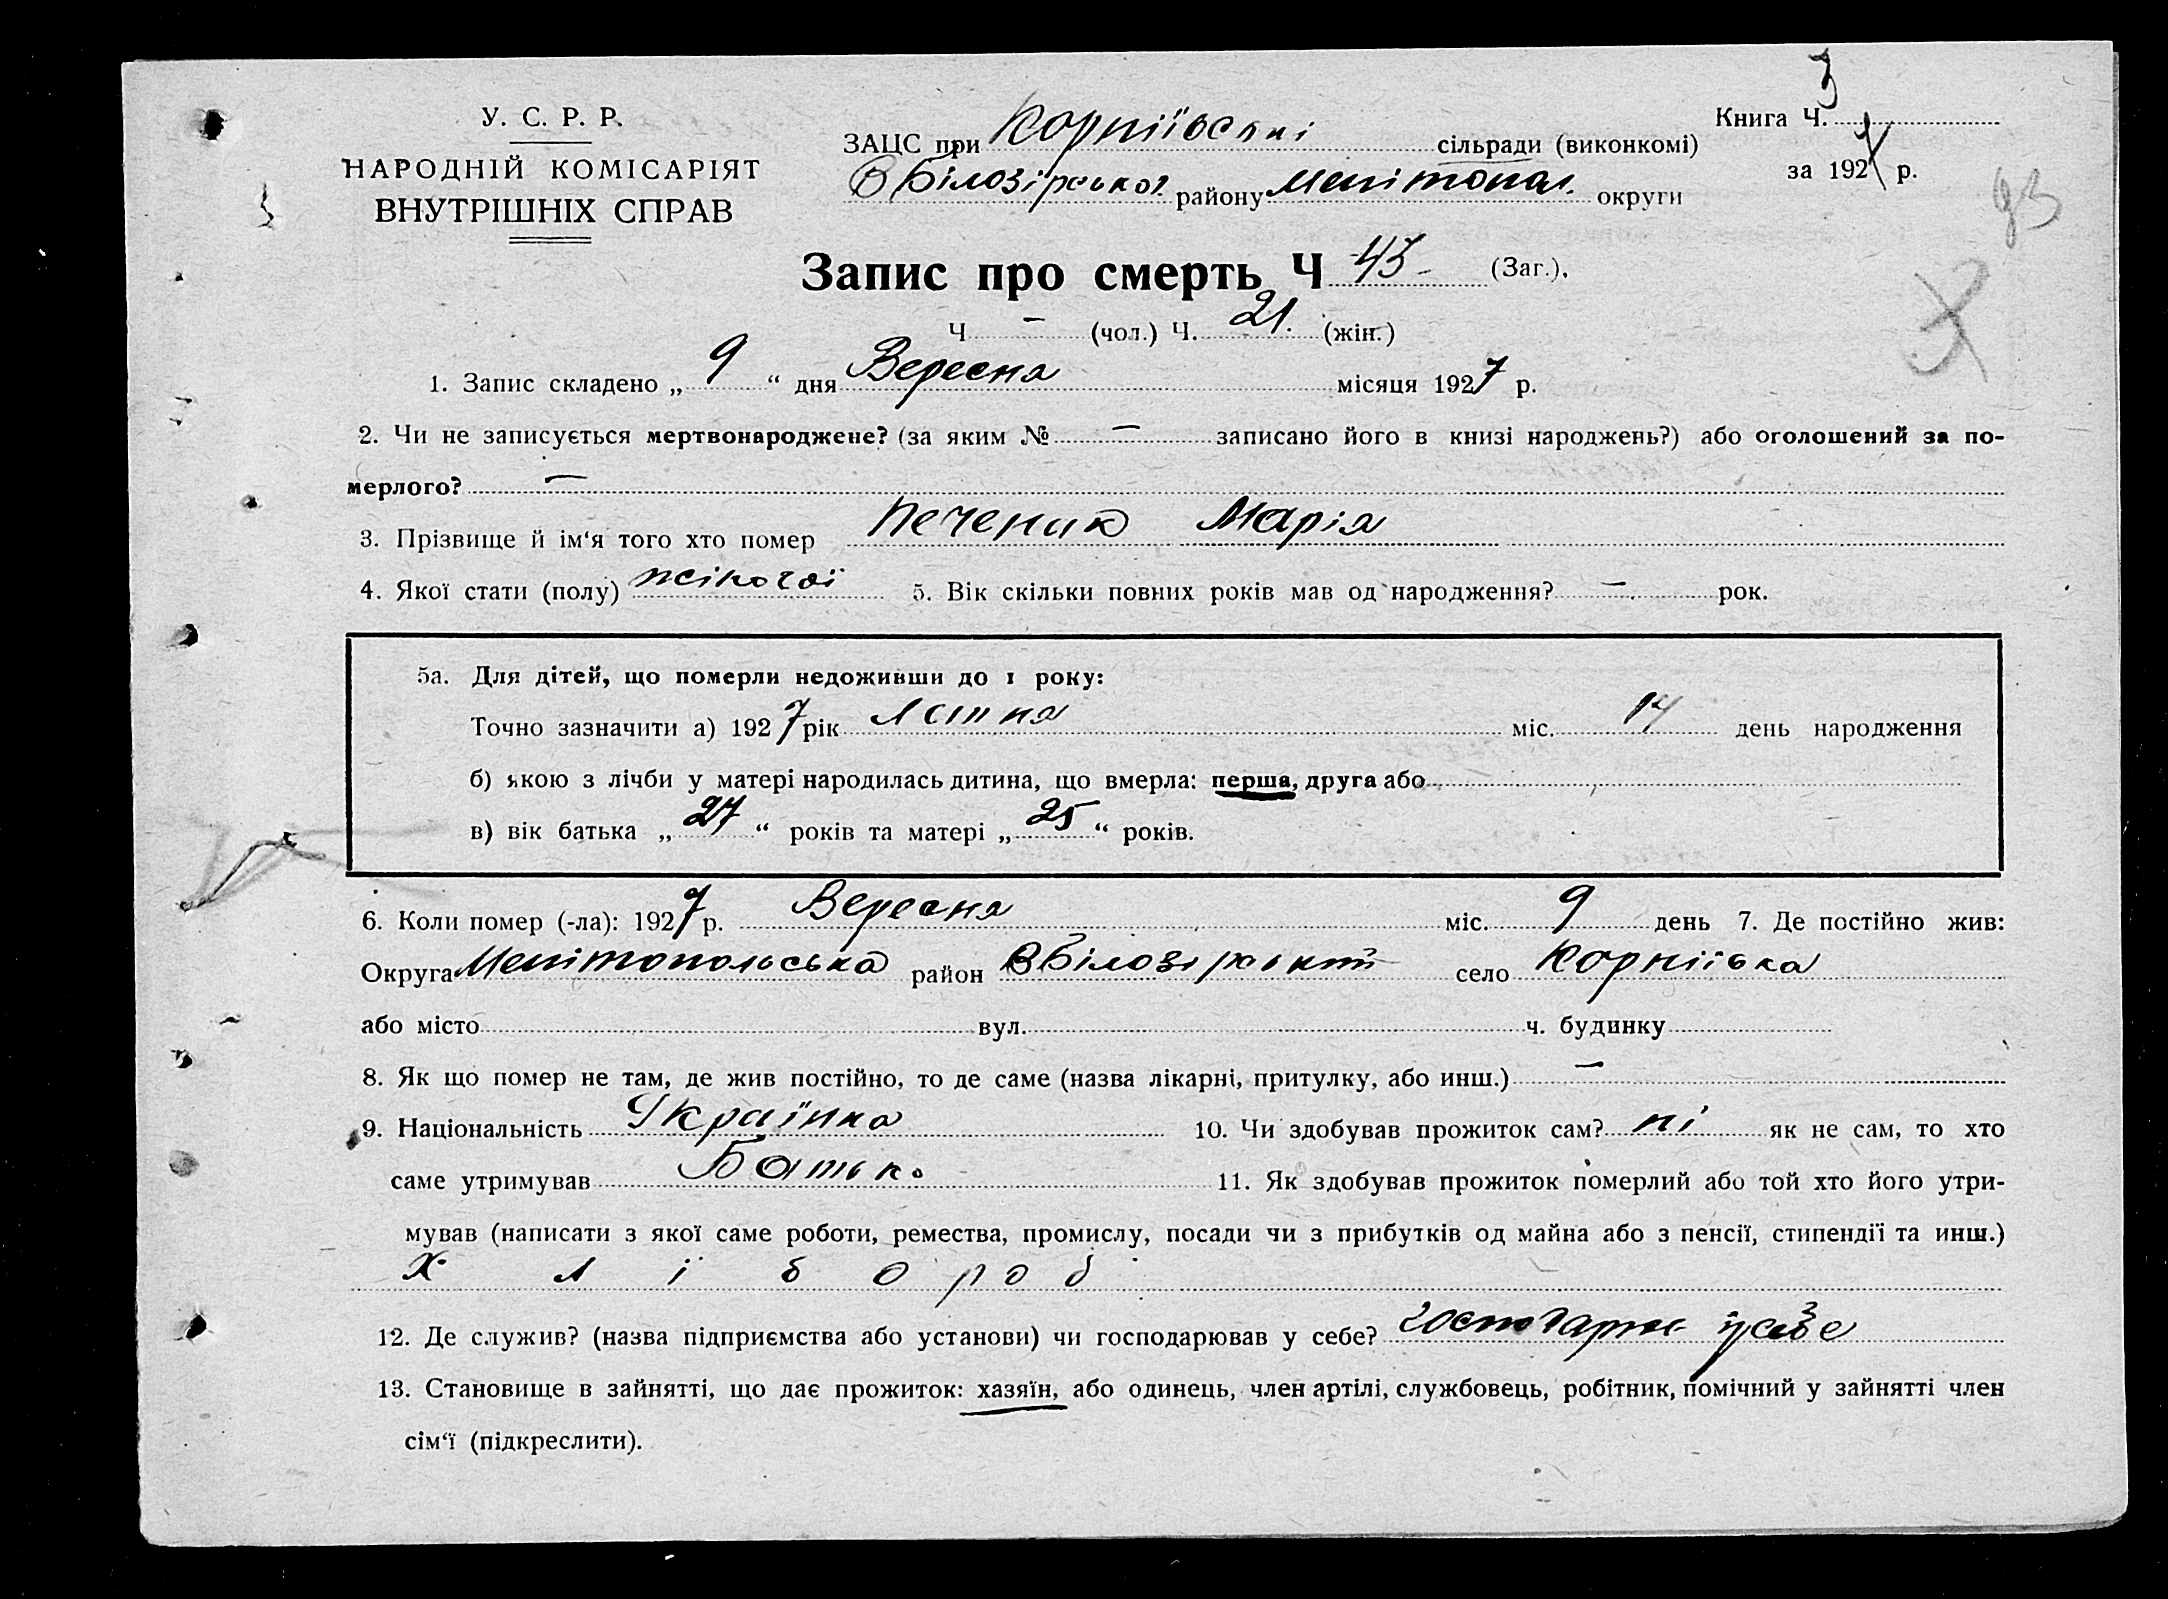 У. С. Р. Р.
НАРОДНІЙ КОМІСАРІЯТ
ВНУТРІШНІХ СПРАВ
ЗАЦС при Корніївські сільради (виконкомі)
В Білозірської району Мелітопол. округи
Книга Ч. 3
за 1927 р.
93
Запис про смерть Ч 43 (Заг.).
Ч — (чол.) Ч. 21. (жін.)
1. Запис складено „ 9 “ дня Вересня місяця 1927 р.
2. Чи не записується мертвонароджене? (за яким № — записано його в книзі народжень?) або оголошений за по-
мерлого? —
3. Прізвище й ім‘я того хто помер Печеник Марія
4. Якої стати (полу) жіночої 5. Вік скільки повних років мав од народження? — рок.
5а. Для дітей, що померли недоживши до 1 року:
Точно зазначити а) 1927 рік Ліпня міс. 14 день народження
б) якою з лічби у матері народилась дитина, що вмерла: перша, друга або
в) вік батька „ 27 “ років та матері „ 25 “ років.
6. Коли помер (-ла): 1927 р. Вересня міс. 9 день 7. Де постійно жив:
Округа Мелітопольська район В Білозірський село Корніївка
або місто вул. ч. будинку
8. Як що помер не там, де жив постійно, то де саме (назва лікарні, притулку, або инш.) —
9. Національність Українка 10. Чи здобував прожиток сам? ні як не сам, то хто
саме утримував Батько 11. Як здобував прожиток померлий або той хто його утри-
мував (написати з якої саме роботи, ремества, промислу, посади чи з прибутків од майна або з пенсії, стипендії та инш.)
Х л і б о р о б
12. Де служив? (назва підприємства або установи) чи господарював у себе?
13. Становище в зайнятті, що дає прожиток: хазяїн, або одинець, член артілі, службовець, робітник, помічний у зайнятті член
сім‘ї (підкреслити).